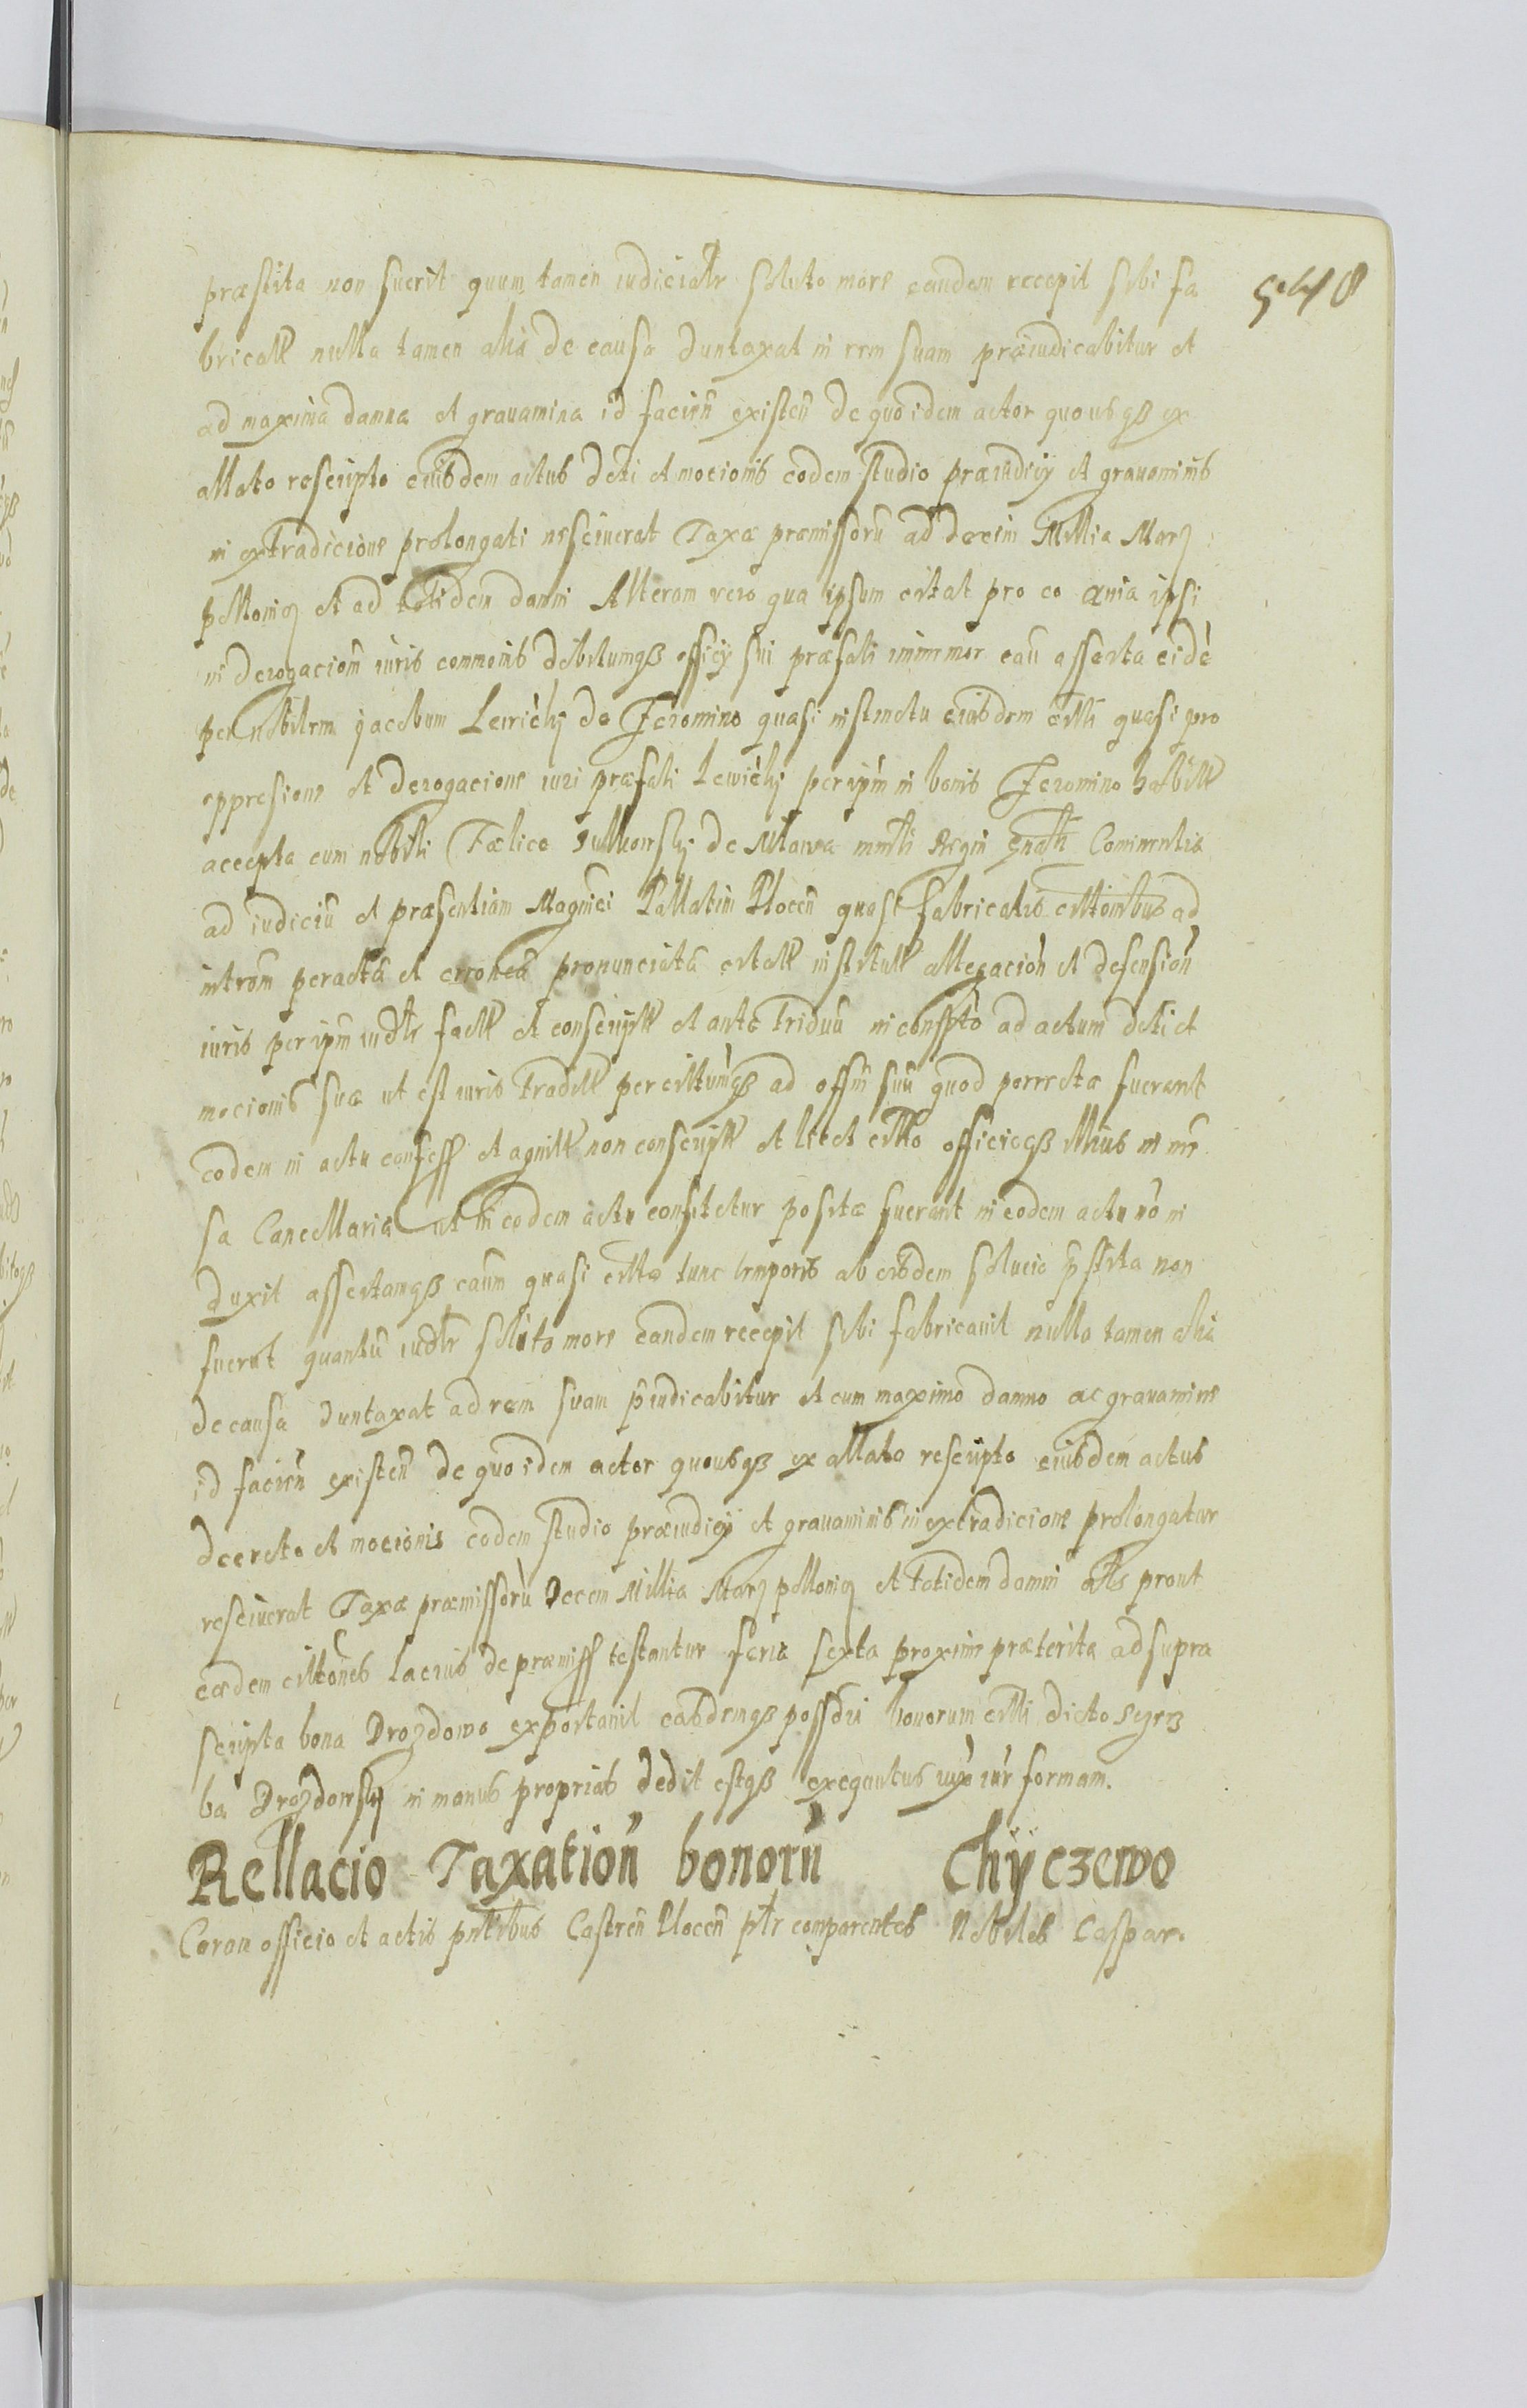 548
præstita non fuerit quum tamen iudicialr soluto more eandem recepit sibi fa
bricatt nulla tamen alia de causa duntaxat in rem suam præiudicabitur et
ad maxima damna et grauamina id facien existen de quo idem actor quousqß ex
allato rescripto eiusdem actus dcti et mocionis eodem studio præiudicij et grauaminis
in extradicione prolongati resciuerat Taxa præmissorū ad decem Millia Marz
pollonicz et ad totidem damni Alteram vero qua ipsum citat pro eo quia ipsi
in derogaciom iuris commonis debitumqß officij sui præfati cau asserta eidē
per nobilem jacobum Lewiczkj de Jeromino quasi instinctu eiusdem citti quasi pro
oppresione et derogacione iuri præfati Lewiczkj per ipm in bonis Jeromino
accepta cum nobili Fælice Sulkowskj de Mlawa Regni Gnali
ad iudiciū et præsentiam Magnici Pallatini Plocen quasi fabricatis cittonibus ad
introm peractā et erroneā pronunciatā citatt institutt allegacion et defension
iuris per ipm iudlr factt et conscriptt et ante triduū in conspto ad actum dcti et
mocionis suæ ut est iuris tradditt per cittumqß ad offm suū quod porrectæ fuerant
eodem in actu confess et agnitt non conscriptt et licet citto officioqß illius in
sa Cancellaria ut in eodem actu confitetur positæ fuerant in eodem actu nō in
duxit assertamqß caūm quasi citto tunc temporis ab eisdem solucio pstita non
fuerat quantū iudlr soluto more eandem recepit sibi fabricauit nulla tamen alia
de causa duntaxat ad rem suam piudicabitur et cum maximo damno ac grauamine
id facien existen de quo idem actor quousqß ex allato rescripto eiusdem actus
decreto et mocionis eodem studio præiudicij et grauaminis in extradicione prolongatur
resciuerat Taxa præmissorū Decem Millia Marz pollonicz et totidem damni alts prout
eædem cittones lacius de præmiss testantur feria sexta proxime præterita ad supra
scripta bona Drozdowo exportauit easdemqß possōri bonorum citti dicto
ba Drozdowskj in manus proprias dedit estqß exequutus iuxta iur formam.
Rellacio Taxation bonorū Chÿczewo
Coram officio et actis pntibus Castren Plocen plr comparentes Nobiles Caspar.